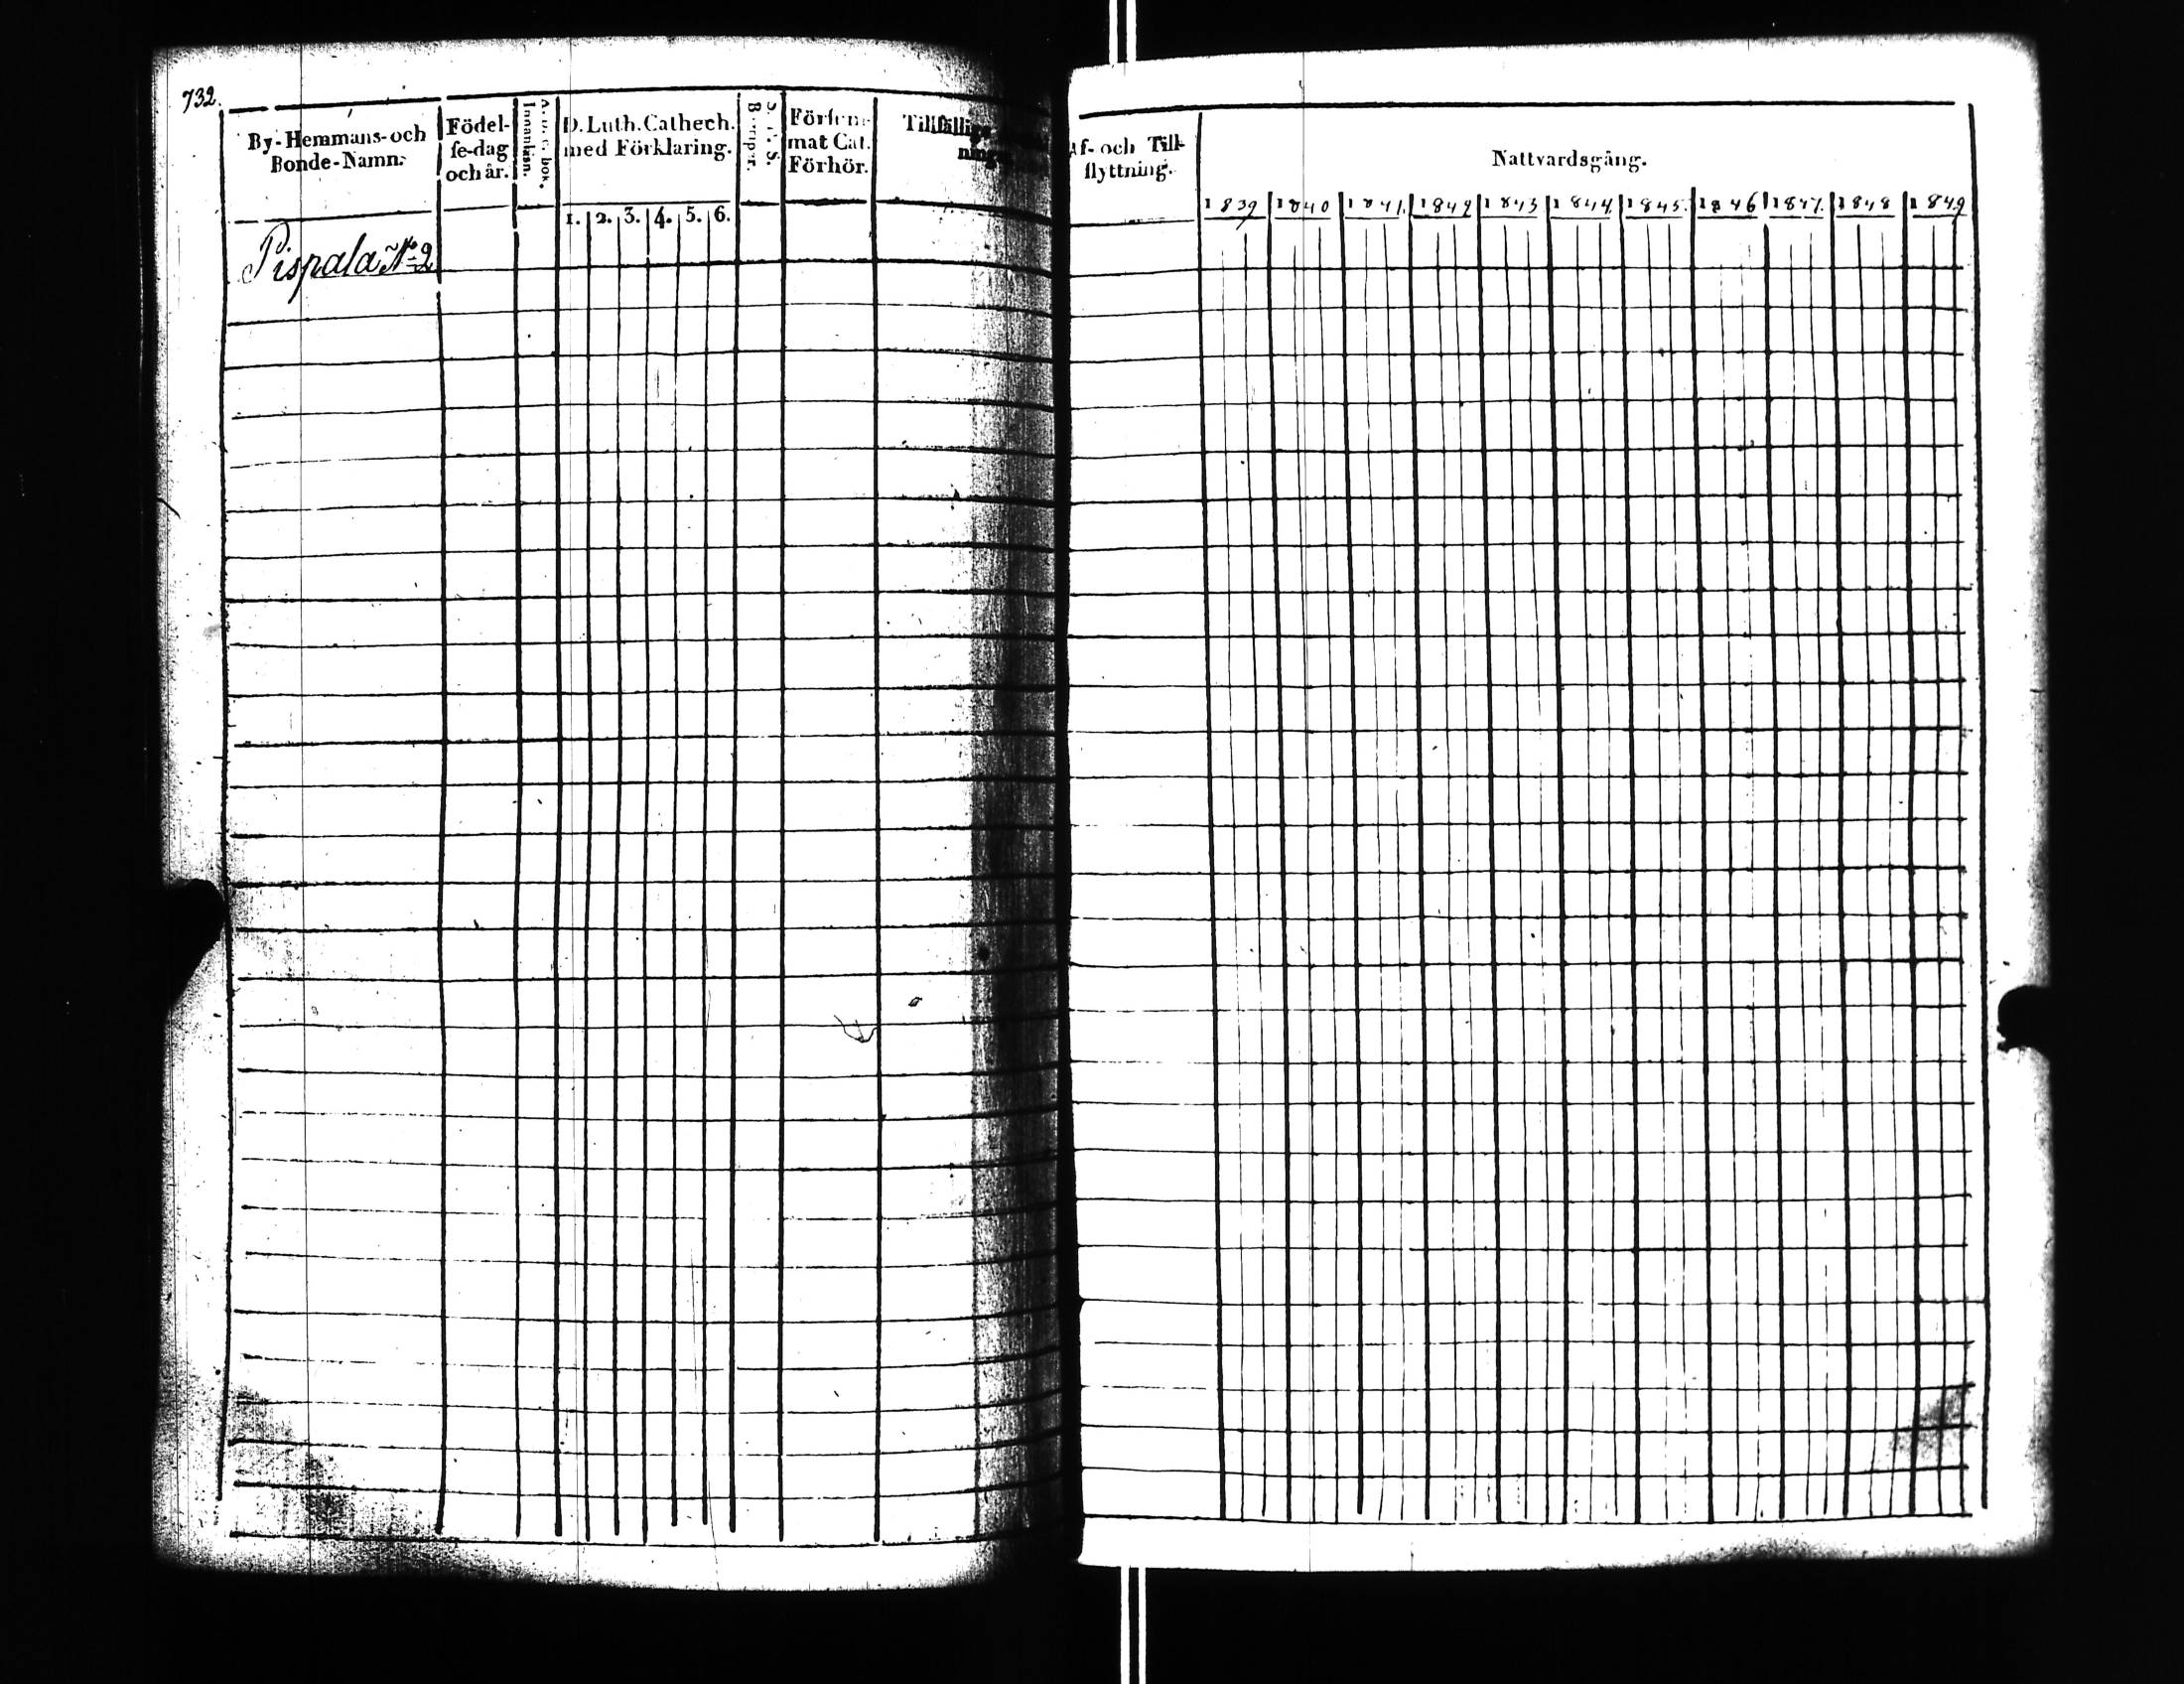 732.
By-Hemmans-och
Bonde-Namn.
Födel-
se-dag
och år.
A. b. c. bok.
Innanläsn.
D. Luth. Cathech.
med Förklaring.
1. 2. 3. 4. 5. 6.
Försum-
mat Cat.
Förhör.
Tillfällige
Af- och Till-
flyttning.
Nattvardsgång.
1839 1840 1841. 1842 1843 1844. 1845. 1846 1847. 1848 1849
Pispala N:o 2